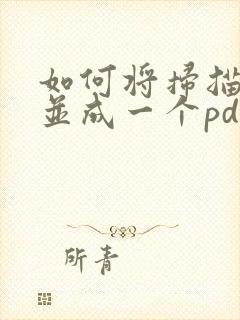 如何将掃描
並成一个pd
所青